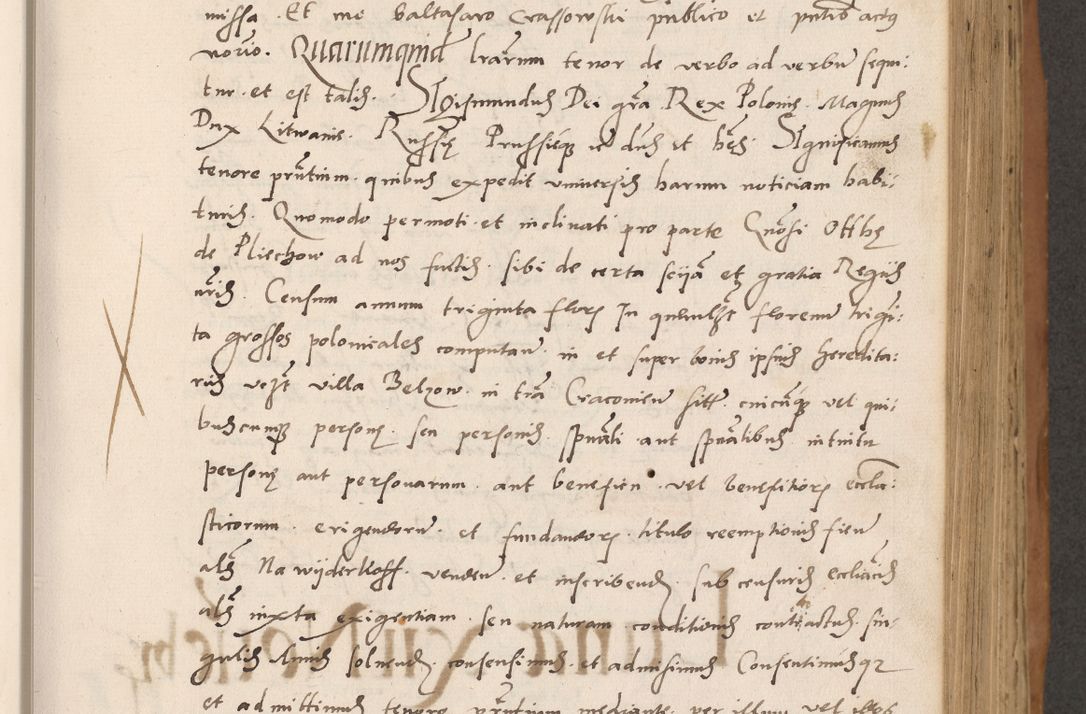 missa. Et me Baltasaro Crassowski publico et pntib actis
norio. Quarumquid lrarum tenor de verbo ad verbu sequi:
tur. et est talis. Sigismundus Dei gra Rex Polonie. Magnus
Dux Litwanie. Russie Prussieque ac dns et heres. Significamus
tenore pntium. quibus expedit universis harum noticiam habi:
turis. Quomodo permoti. et inclinati pro parte Gnosi
de Pliechow ad nos factis. sibi de certa scia et gratia Regiis
nris. Censum annuum triginta flor In quolibet florenu trigi:
ta grossos polonicales computan. in et super bonis ipsius heredita:
riis villa Belzow. in tra Cracovien sitt. cuicunque vel qui:
buscumque persone. seu personis. spuali aut spualibus intuitu
persone aut personarum. aut beneficii. vel beneficiorum eccla:
sticorum. erigendoru. et fundandorum. titulo reemptionis sien
als Na wyderkoff. venden. et inscribendi. sub censuris ecclacis
als iuxta exigentiam. seu naturam conditionis contractus. sin:
gulis Annis solvendi. consensimus. et admisimus Consentimusque
et admittimus tenore pntium mediante. per illum vel illos